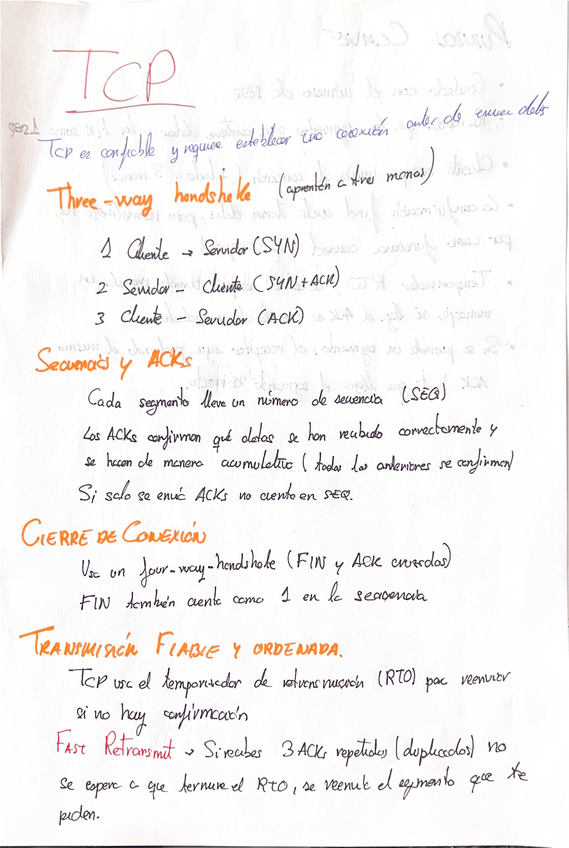 TCP
TCP es confiable y requiere establecer una conexión antes de enviar datos
Three-way handshake (apretón a tres manos)
1 Cliente → Servidor (SYN)
2 Servidor - Cliente (SYN+ACK)
3 Cliente - Servidor (ACK)
Secuencias y ACKs
Cada segmento lleva un número de secuencia (SEQ)
Los ACKs confirman qué datos se han recibido correctamente y
se hacen de manera acumulativa (todos los anteriores se confirman)
Si solo se envía ACKs no cuenta en SEQ.
CIERRE DE CONEXIÓN
Usa un four-way-handshake (FIN y ACK cruzados)
FIN también cuenta como 1 en la secuencia
TRANSMISIÓN FIABLE Y ORDENADA.
TCP usa el temporizador de retransmisión (RTO) para reenviar
si no hay confirmación
FAST Retransmit → Si recibes 3 ACKs repetidos (duplicados) no
se espera a que termine el RTO, se reenvía el segmento que te
piden.